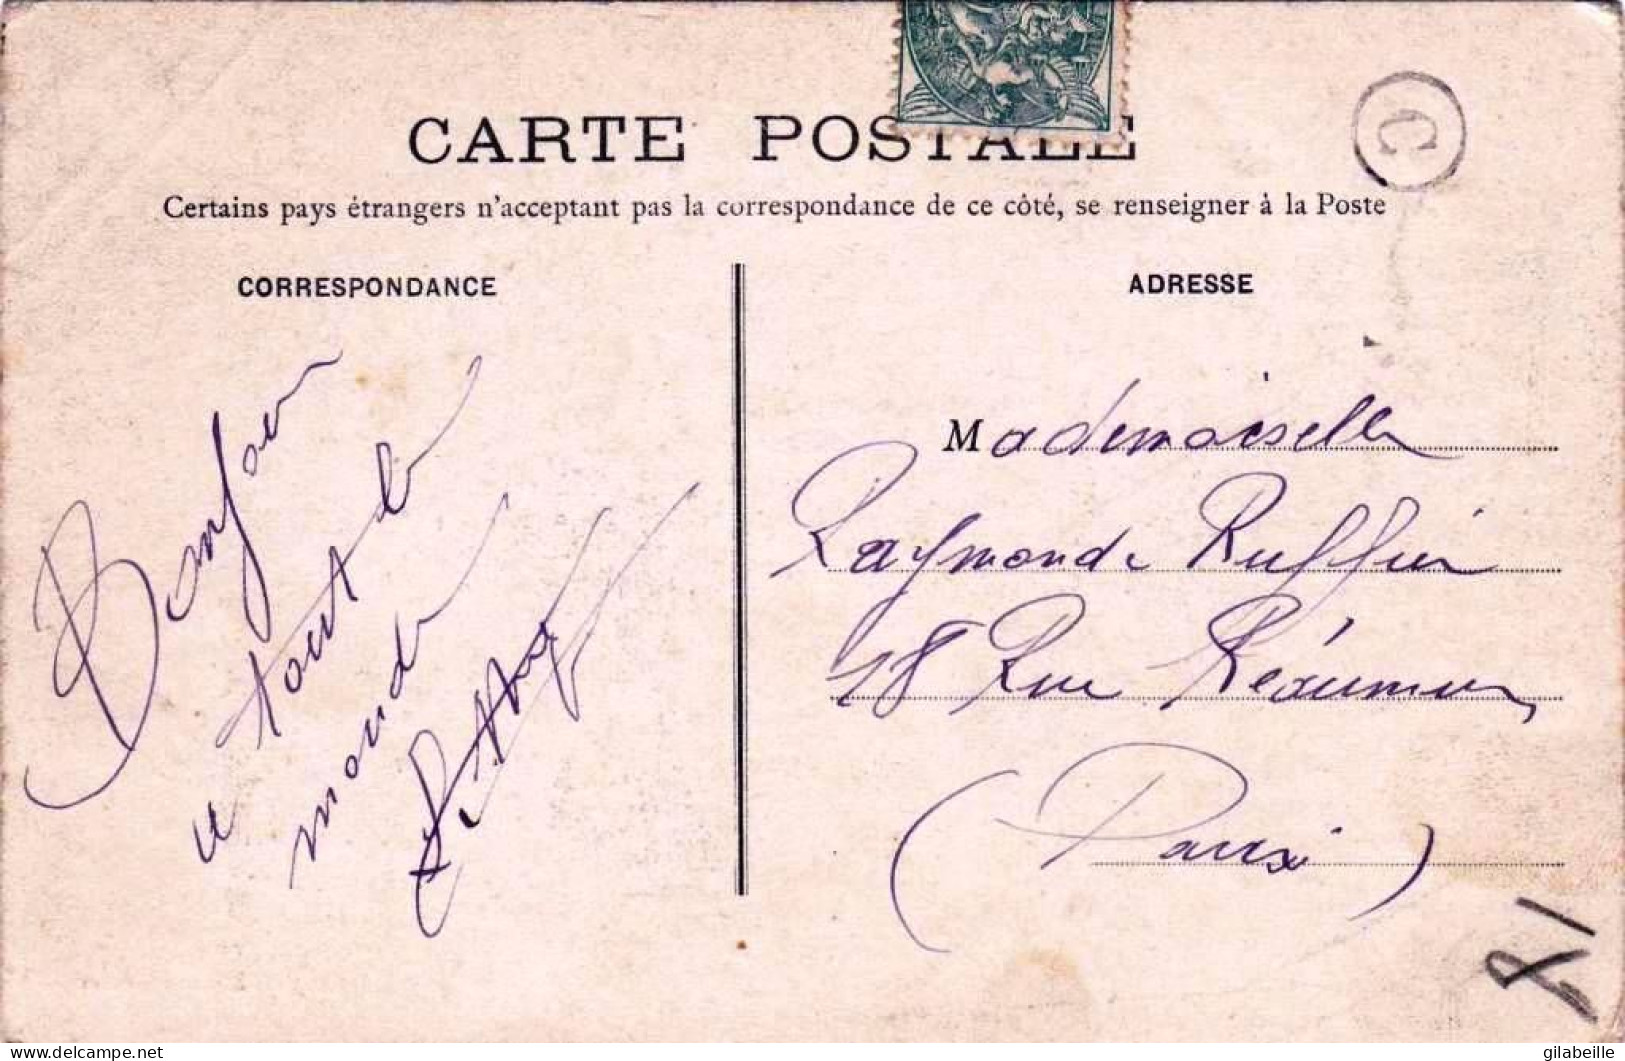 CARTE POSTALE
C
Certains pays étrangers n'acceptant pas la correspondance de ce côté, se renseigner à la Poste
CORRESPONDANCE
Bonjour
a tout le
monde
ADRESSE
Mademoiselle
Raymonde Ruffier
18 Rue Réaumur
(Paris)
www.delcampe.net
gilabeille